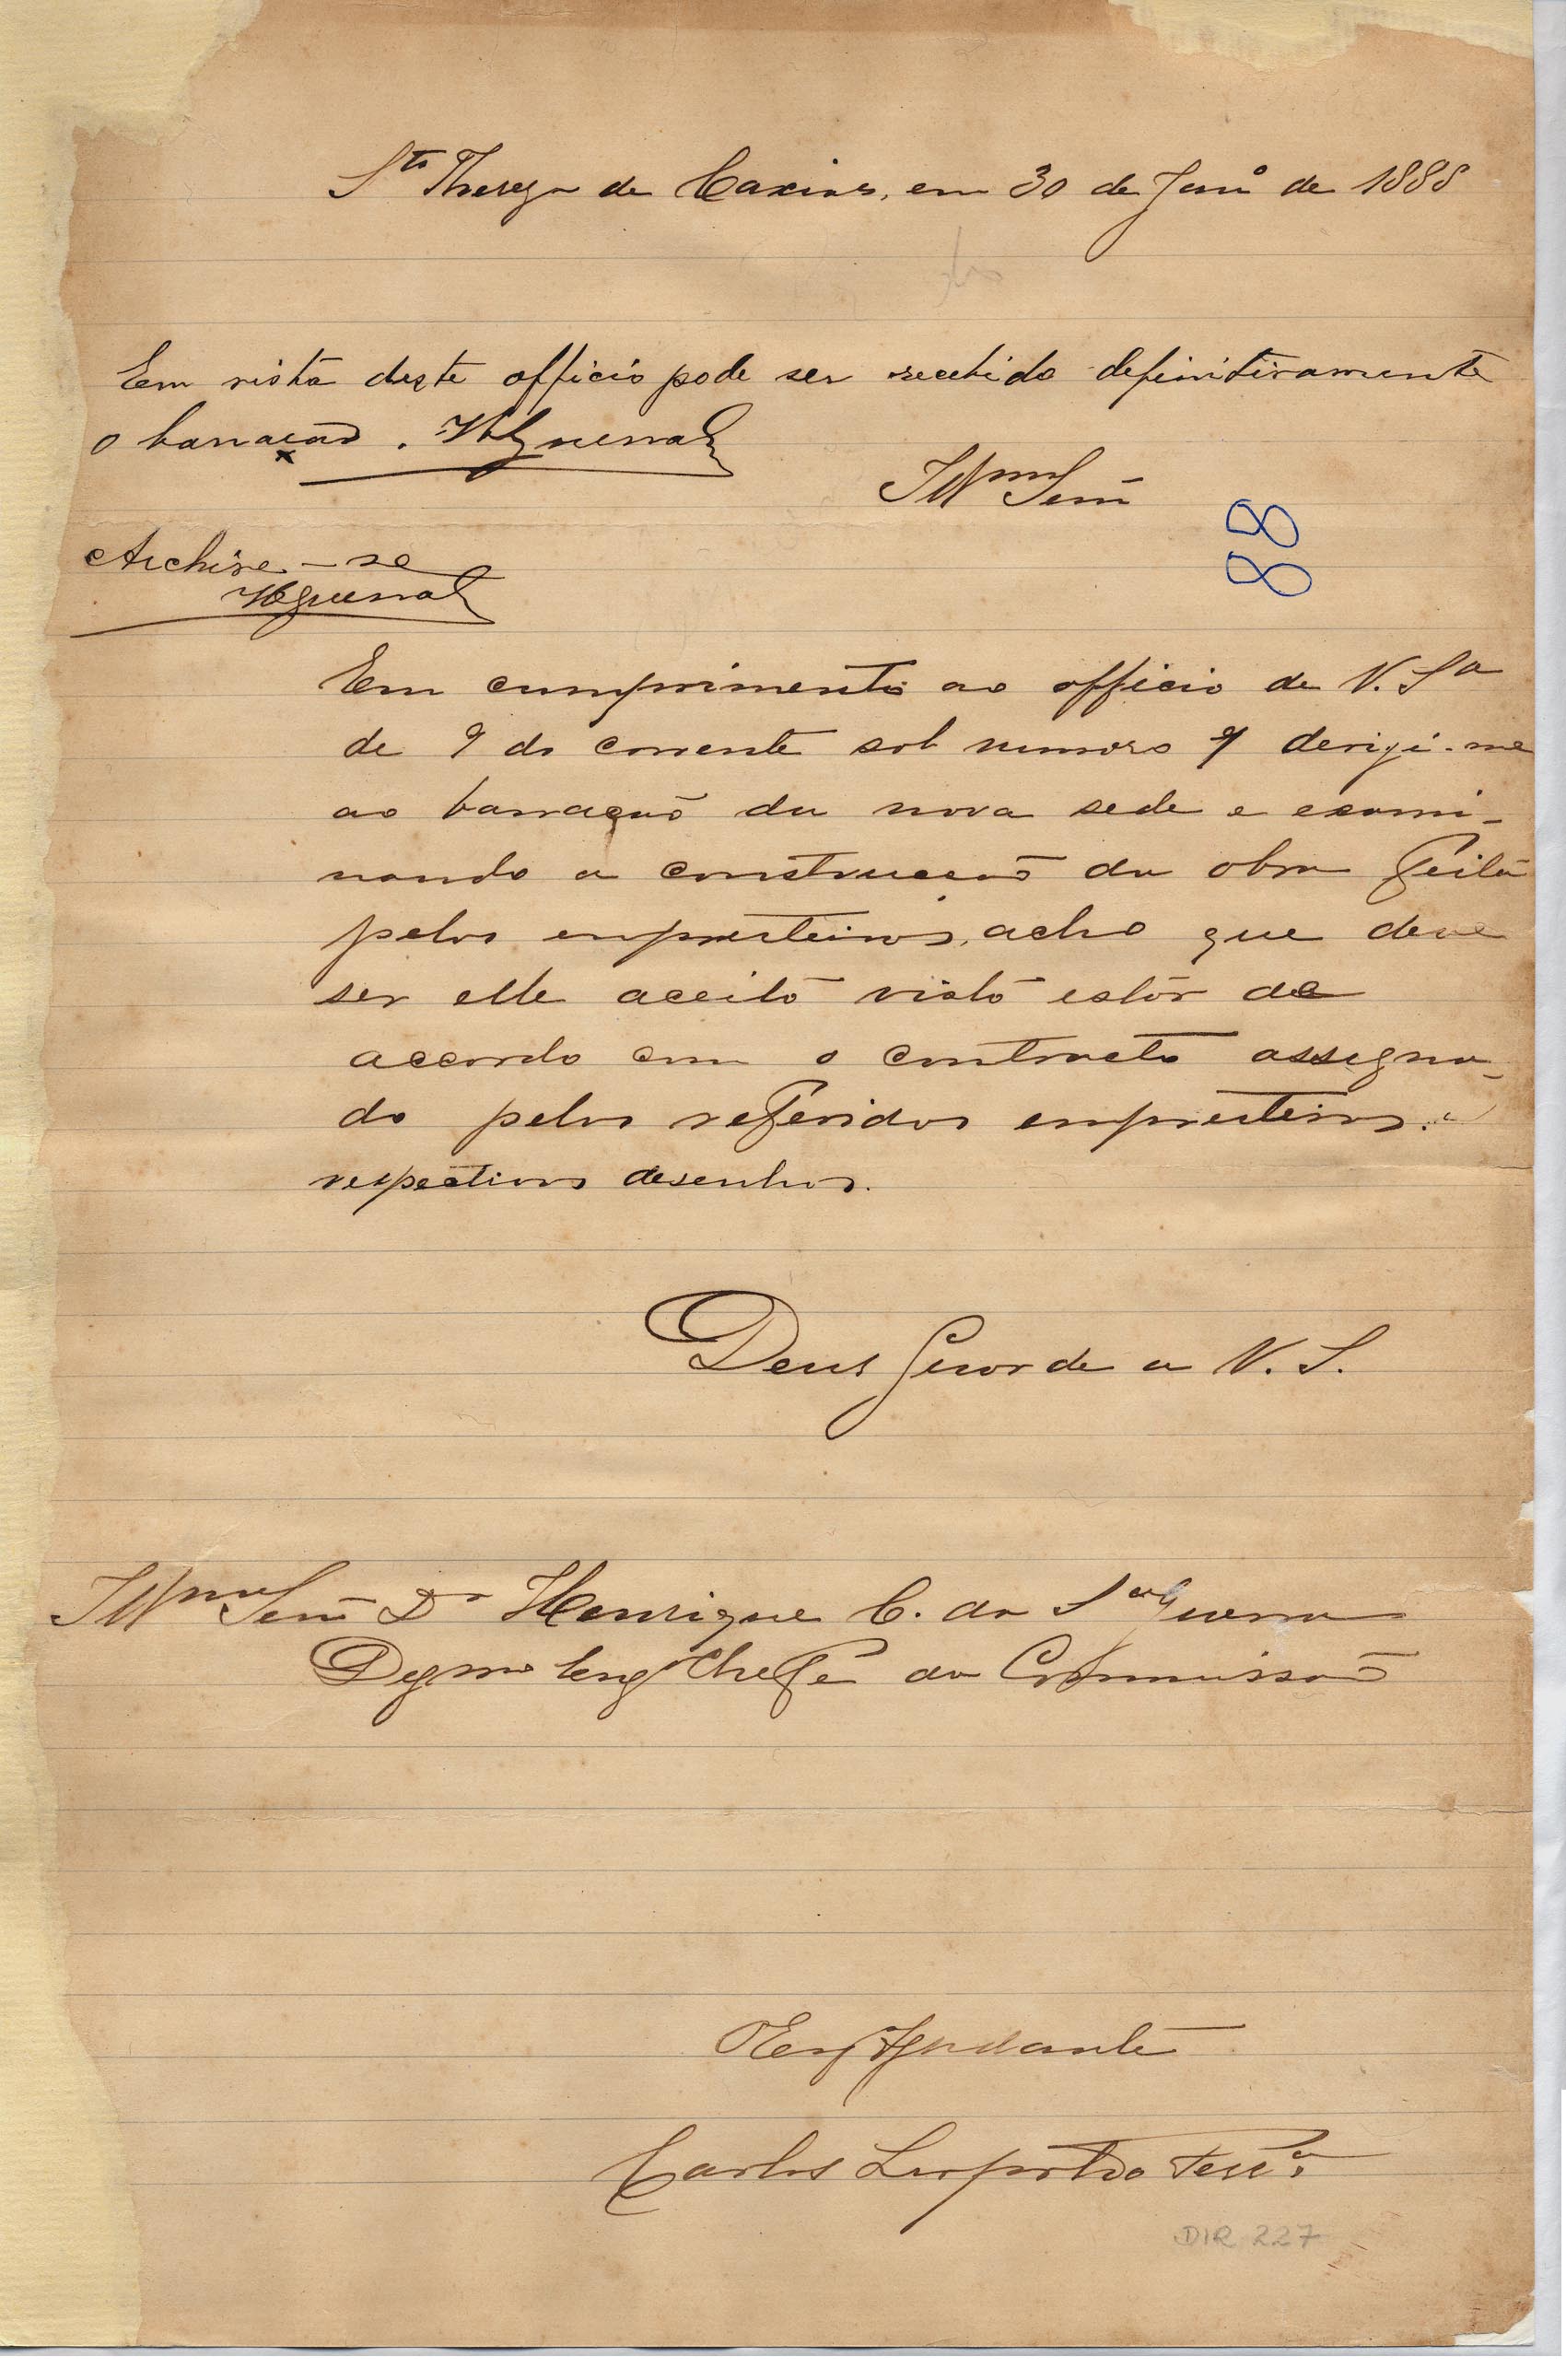 Sta Thereza de Caxias, em 30 de Janº de 1888
Em vista deste officio pode ser recebido definitivamente
o barracão. HGuerra
Illmo Senr
88
Archive-se
HGuerra
Em cumprimento ao officio de V. Sa
de 9 do corrente sob numero 9 derigi-me
ao barracão da nova sede e exami-
nando a construcção da obra feita
pelos empreiteiros, acho que deve
ser elle aceito visto estar de
accordo com o contracto assigna-
do pelos referidos empreiteiros. e
respectivos desenhos.
Deus Guarde a V. S.
Illmo Senr Dr Henrique C. da Sa Guerra
Dgmo Eng Chefe da Commissão
O Eng Ajudante
Carlos Leopoldo
DIR 227